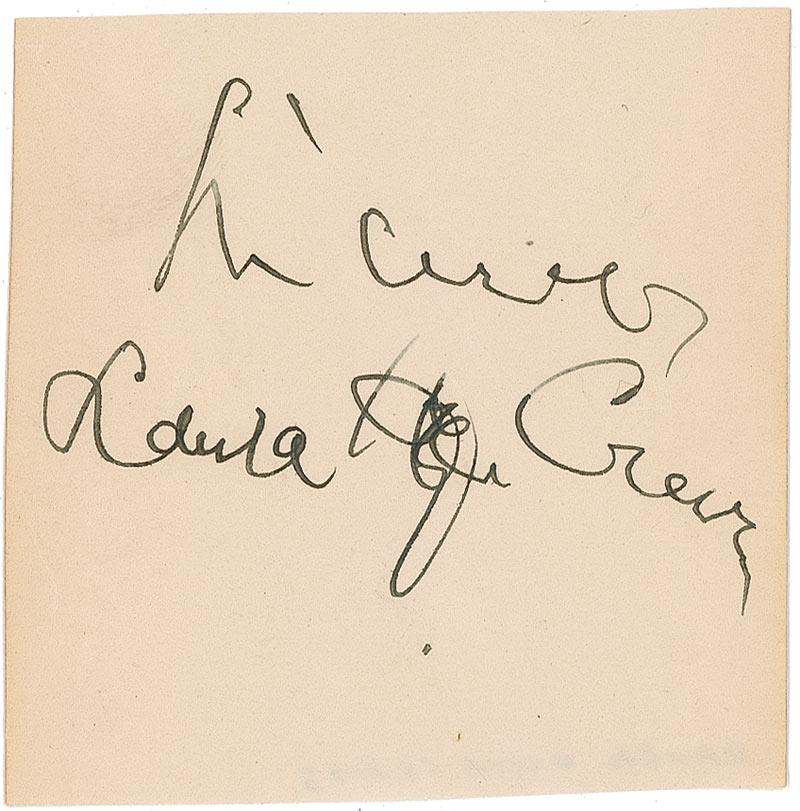 Sincerely
Laura Hope Crews